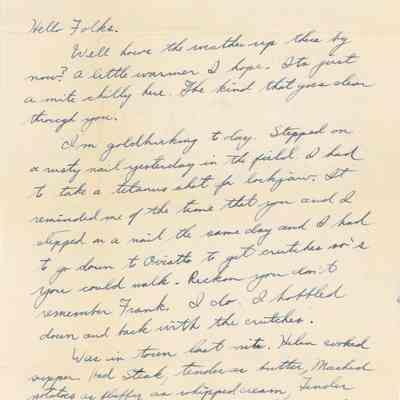 Hello Folks.
Well hows the weather up there by
now? A little warmer I hope. Its just
a mite chilly here. The kind that goes clear
through you.
I'm goldbricking today. Stepped on
a rusty nail yesterday in the field. I had
to take a tetanus shot for lockjaw. It
reminded me of the time that you and I
stepped on a nail the same day and I had
to go down to to get crutches so's
you could walk. Reckon you don't
remember Frank. I do. I hobbled
down and back with the crutches.
Was in town last nite. Helen cooked
supper. Had Steak, tender as butter, Mashed
potatoes as fluffy as whipped cream, Tender